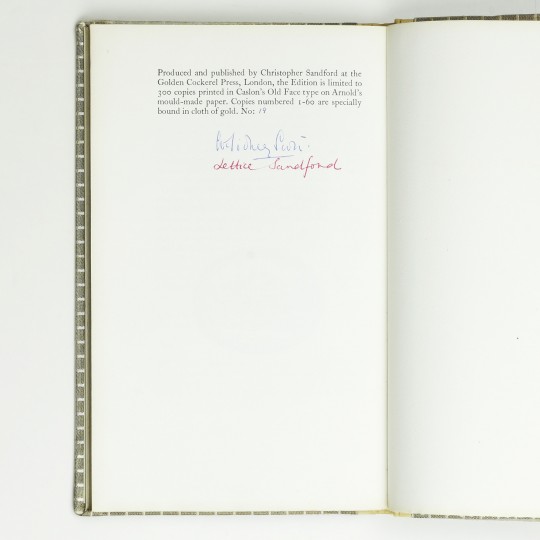 Produced and published by Christopher Sandford at the
Golden Cockerel Press, London, the Edition is limited to
300 copies printed in Caslon's Old Face type on Arnold's
mould-made paper. Copies numbered 1-60 are specially
bound in cloth of gold. No: 18
Lettice Sandford